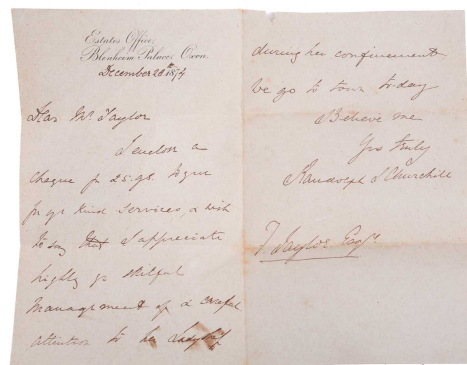 Estates Office,
Blenheim Palace, Oxon.
December 28th 1874
Dear Mr. Taylor
I enclose a
cheque for 25.gs. to you
for yr kind services, & wish
to say that I appreciate
highly yr skilful
management of & careful
attention to her Ladyship
during her confinement
We go to town to-day
Believe me
Yrs truly
Randolph S Churchill
T. Taylor Esqr.